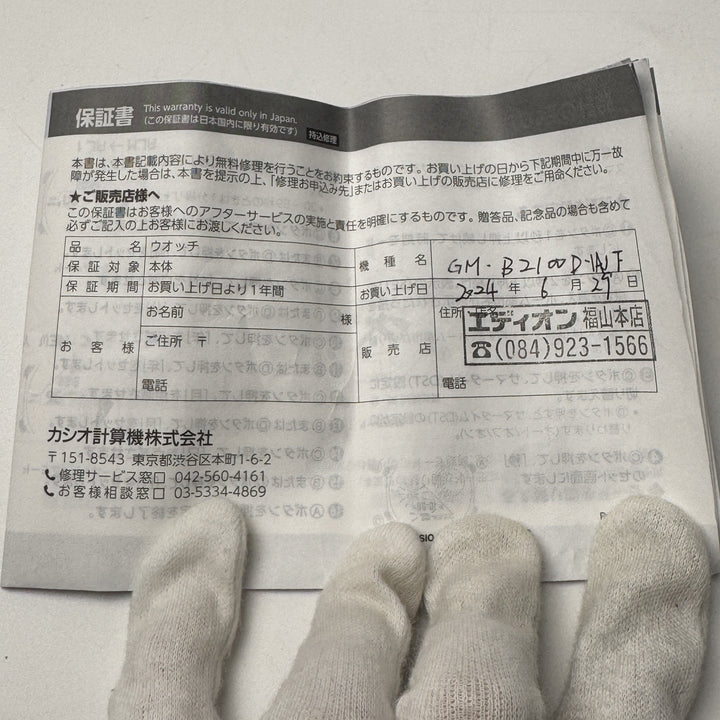 保証書 This warranty is valid only in Japan.
(この保証書は日本国内に限り有効です) 持込修理
本書は、本書記載内容により無料修理を行うことをお約束するものです。お買い上げの日から下記期間中に万一故
障が発生した場合は、本書を提示の上、「修理お申込み先」またはお買い上げの販売店に修理をご用命ください。
★ご販売店様へ
この保証書はお客様へのアフターサービスの実施と責任を明確にするものです。贈答品、記念品の場合も含めて
必ずご記入の上お客様にお渡しください。
品名 ウオッチ
保証対象 本体
保証期間 お買い上げ日より1年間
お客様
お名前 様
ご住所 〒
電話
機種名 GM-B2100D-1AJF
お買い上げ日 2024年6月29日
販売店
住所・店名
エディオン 福山本店
☎(084)923-1566
電話
カシオ計算機株式会社
〒151-8543 東京都渋谷区本町1-6-2
修理サービス窓口 042-560-4161
お客様相談窓口 03-5334-4869